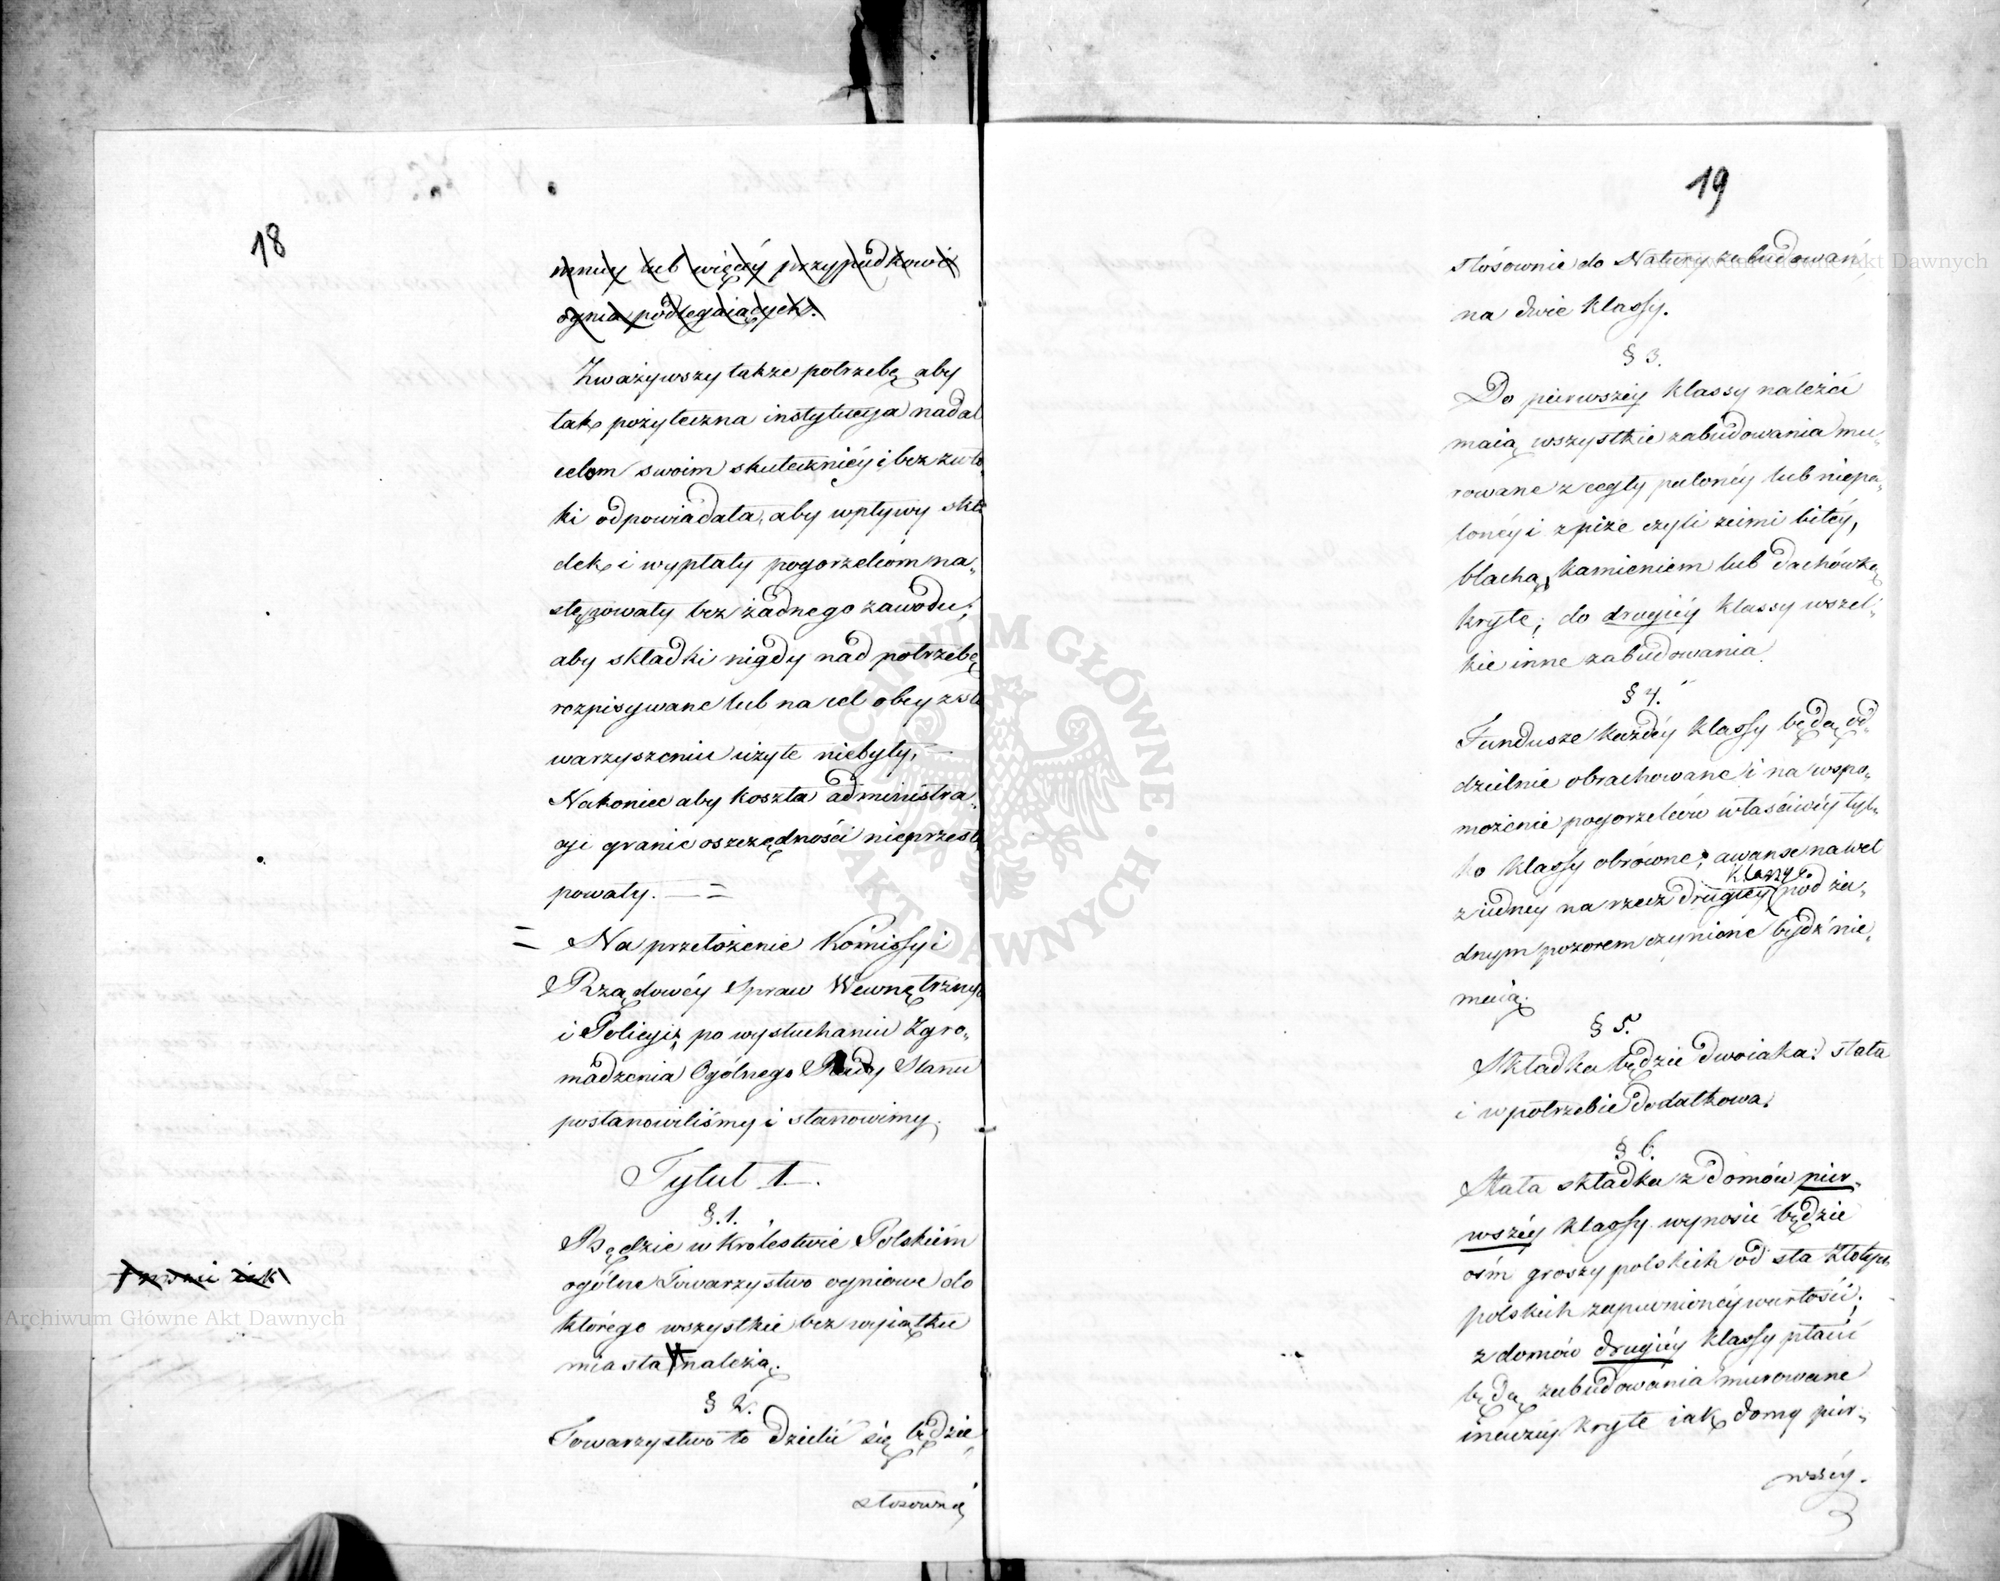 18
mniey lub więcéy przypadkowi
ognia podlegaiących.
Zważywszy także potrzebę aby
tak pożyteczna instytucya nadal
celom swoim skuteczniéy i bez zwło
ki odpowiadała, aby wpływy skła
dek i wypłaty pogorzelcom na-
stępowały bez żadnego zawodu,
aby składki nigdy nad potrzebę
rozpisywane lub na cel obcy sto
warzyszeniu użyte niebyły, —
Nakoniec aby koszta administra-
cyi granic oszczędności nieprzestę
powały. — =
= Na przełożenie Kommissyi
Rządowéy Spraw Wewnętrznych
i Policyi, po wysłuchaniu Zgro-
madzenia Ogólnego Rady Stanu
postanowiliśmy i stanowimy
Tytuł 1.
§. 1.
Będzie w Królestwie Polskiém
ogólne Towarzystwo ogniowe do
którego wszystkie bez wyiątku
miasta należą.
§ 2.
Towarzystwo to dzielić się będzie
stosownie
Archiwum Główne Akt Dawnych
19
stósownie do Natury zabudowań,
na dwie klassy.
§ 3.
Do pierwszéy klassy należéć
maią wszystkie zabudowania mu-
rowane z cegły palonéy lub niepa-
lonéy i z pize czyli ziemi bitéy,
blachą, kamieniem lub dachówką
kryte; do drugiéy klassy wszel-
kie inne zabudowania
§ 4.
Fundusze każdéy klassy będą od-
dzielnie obrachowane i na wspo-
możenie pogorzelców właściwéy tyl-
ko klassy obrócone; awanse nawet
klassy
z iedney na rzecz drugiéy pod ża-
dnym pozorem czynione bydź nie
maią.
§ 5.
Składka będzie dwoiaka: stała
i w potrzebie dodatkowa.
§ 6.
Stała składka z domów pier-
wszéy klassy wynosić będzie
ośm groszy polskich od sta złotych
polskich zapewnionéy wartości;
z domów drugiéy klassy płacić
będą zabudowania murowane
inaczéy kryte iak domy pier-
wszéy.
Archiwum Główne Akt Dawnych
ARCHIWUM GŁÓWNE AKT DAWNYCH